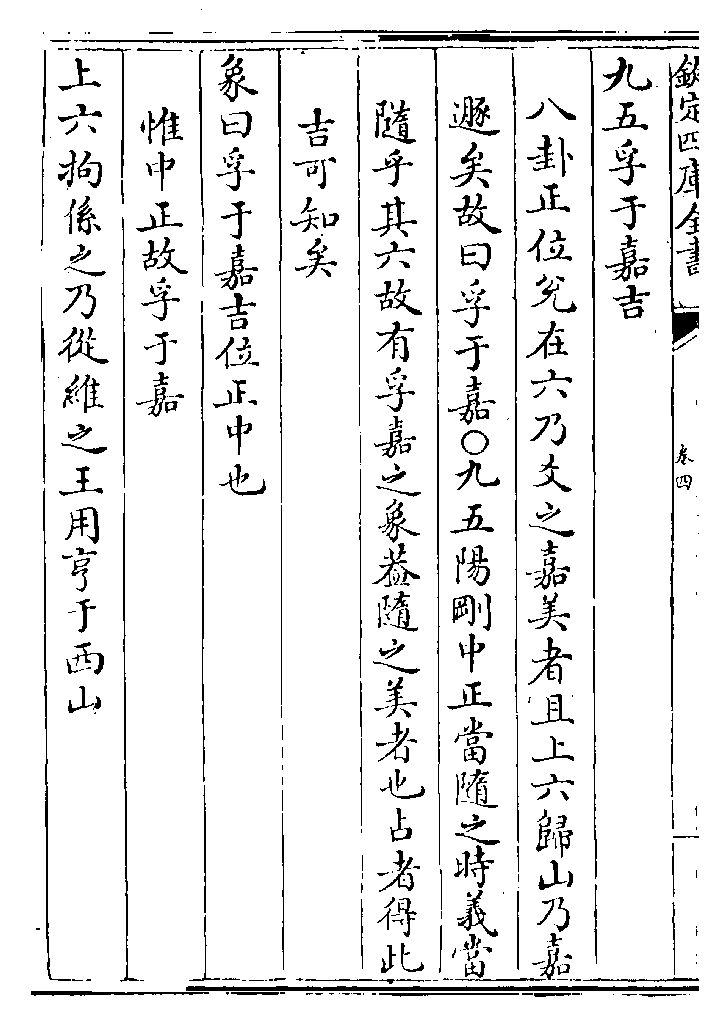 欽定四庫全書
卷四
九五孚于嘉吉
八卦正位兊在六乃爻之嘉美者且上六歸山乃嘉
遯矣故曰孚于嘉○九五陽剛中正當隨之時義當
隨乎其六故有孚嘉之象葢隨之美者也占者得此
吉可知矣
象曰孚于嘉吉位正中也
惟中正故孚于嘉
上六拘係之乃從維之王用亨于西山